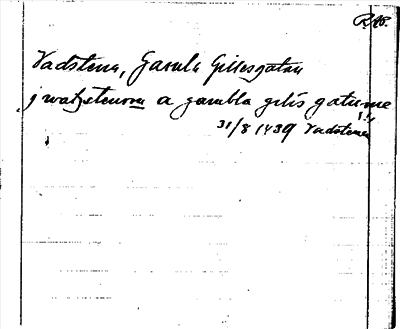 Vadstena, Gamla Gillesgatan
j watzstenom a gambla gilis gatunne
31/8 1439 Vadstena